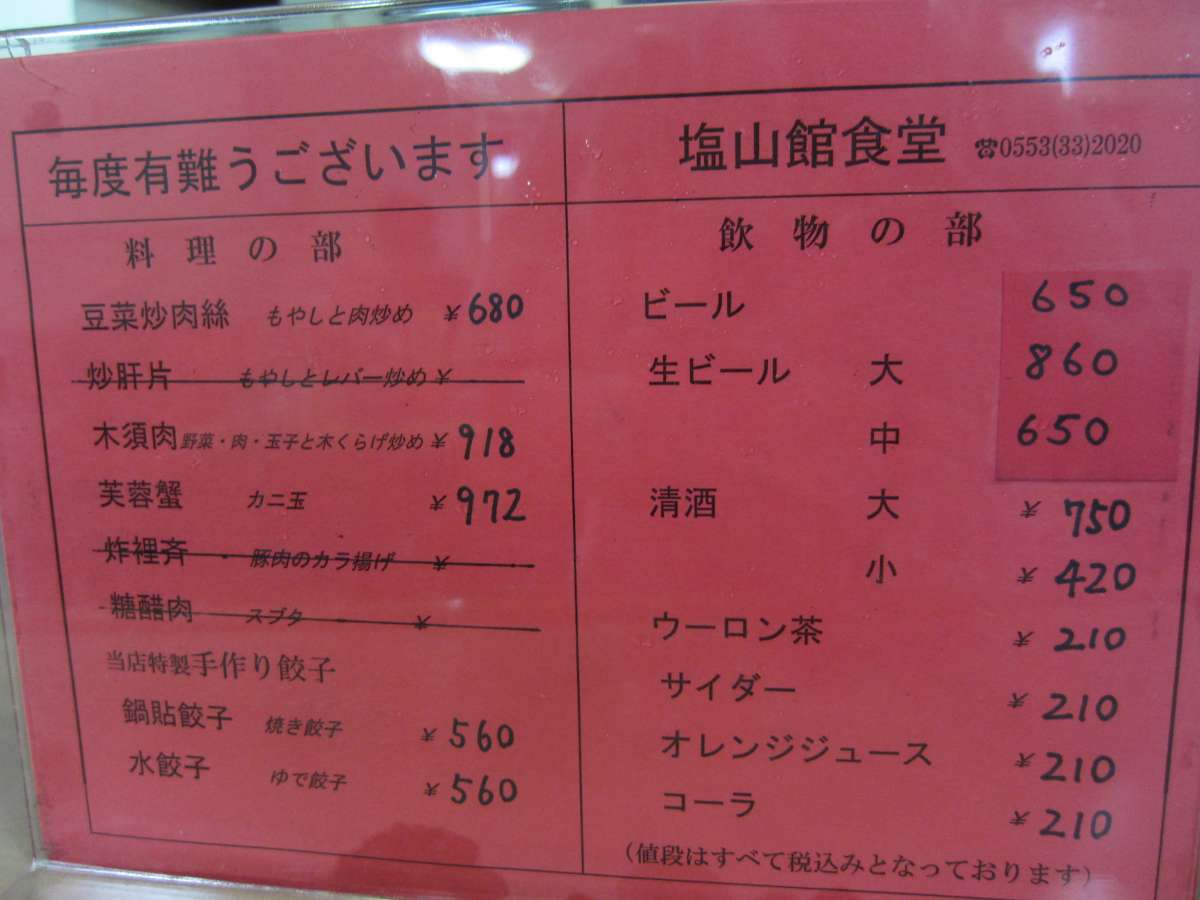 毎度有難うございます
料理の部
豆菜炒肉絲 もやしと肉炒め ¥680
炒肝片 もやしとレバー炒め ¥
木須肉 野菜・肉・玉子と木くらげ炒め ¥918
芙蓉蟹 カニ玉 ¥972
炸裡斉 豚肉のカラ揚げ ¥
糖醋肉 スブタ ¥
当店特製手作り餃子
鍋貼餃子 焼き餃子 ¥560
水餃子 ゆで餃子 ¥560
塩山館食堂 ☎0553(33)2020
飲物の部
ビール 650
生ビール 大 860
中 650
清酒 大 ¥750
小 ¥420
ウーロン茶 ¥210
サイダー ¥210
オレンジジュース ¥210
コーラ ¥210
(値段はすべて税込みとなっております)